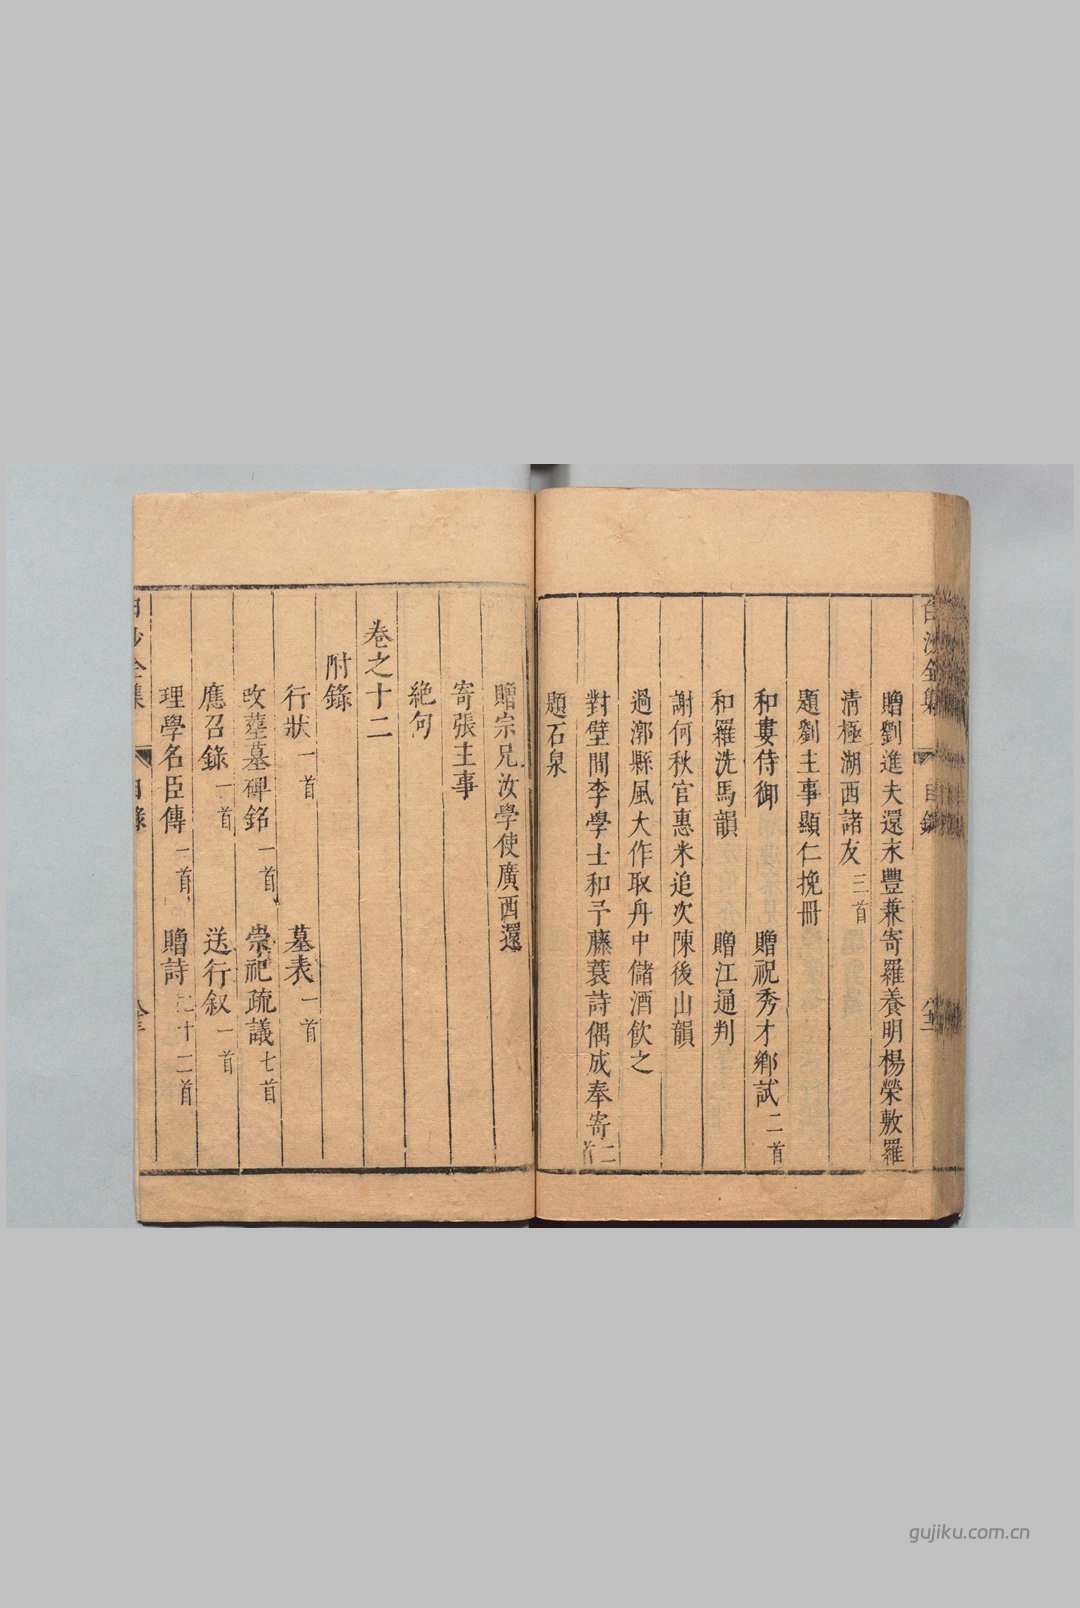 白沙全集 目錄
贈劉進夫還永豐兼寄羅養明楊榮敷羅
清極湖西諸友 三首
題劉主事顯仁挽冊
和婁侍御 贈祝秀才鄉試 二首
和羅洗馬韻 贈江通判
謝何秋官惠米追次陳後山韻
過漷縣風大作取舟中儲酒飲之
對壁間李學士和予藤蓑詩偶成奉寄 二首
題石泉
贈宗兄汝學使廣西還
寄張主事
絕句
卷之十二
附錄
行狀 一首 墓表 一首
改葬墓碑銘 一首 崇祀疏議 七首
應召錄 一首 送行叙 一首
理學名臣傳 一首 贈詩 十二首
白沙全集 目錄
gujiku.com.cn